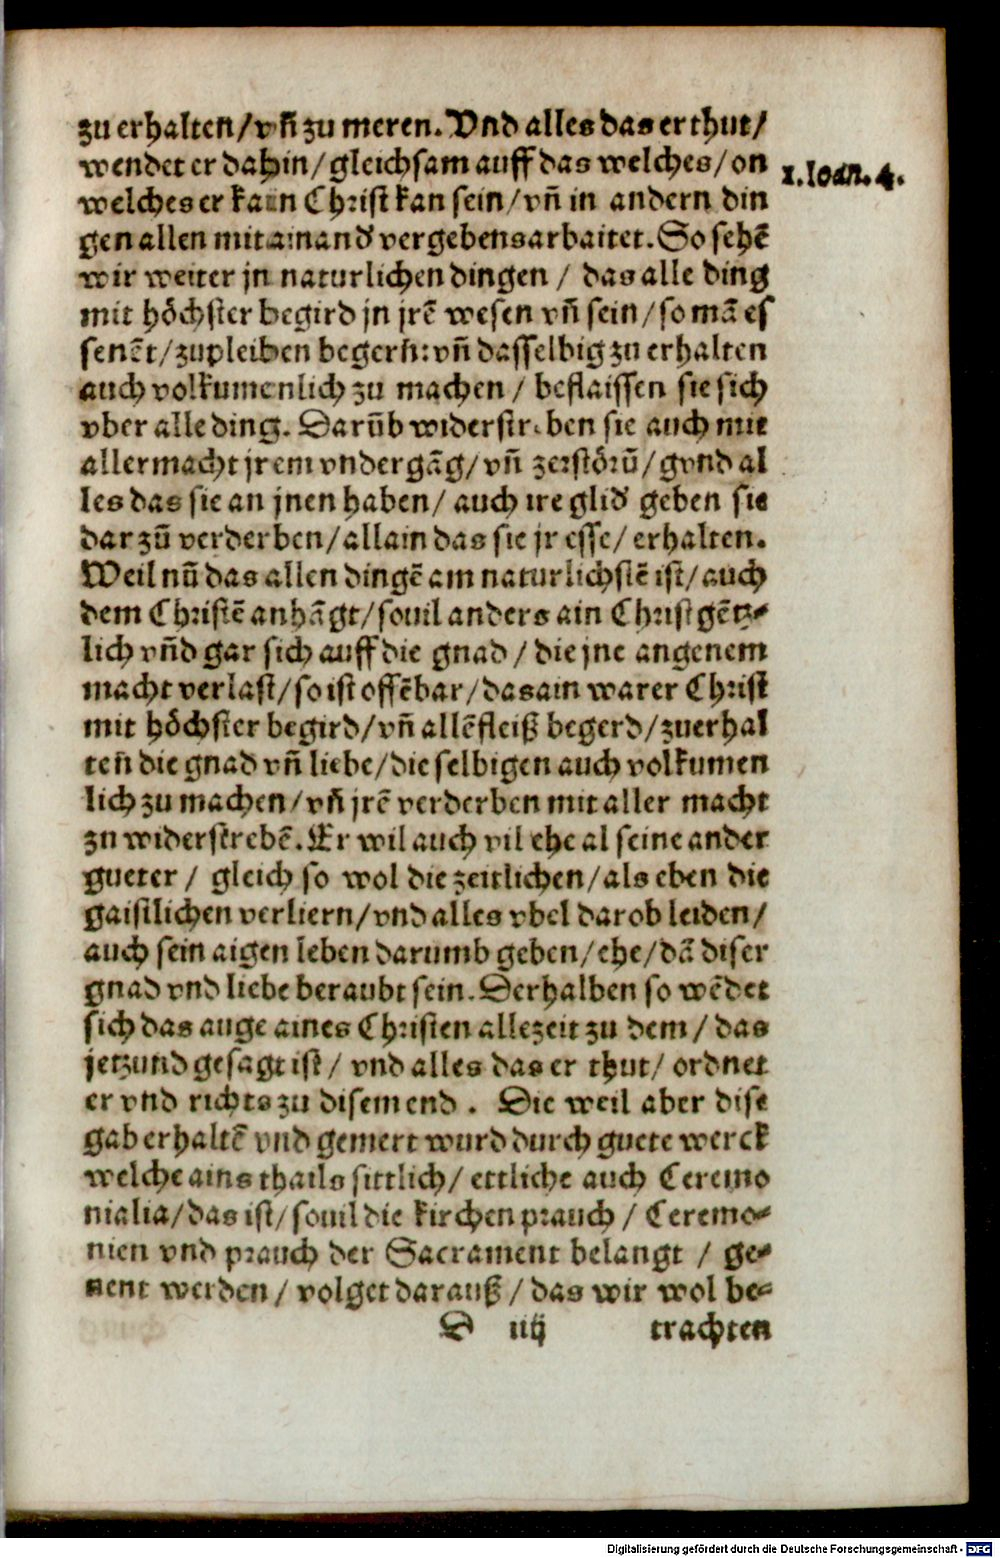 zu erhalten/ vñ zu meren. Vnd alles das er thut/
wendet er dahin/ gleichsam auff das welches/ on
1. Ioan. 4.
welches er kain Christ kan sein/ vñ in andern din
gen allen mit ainand͛ vergebens arbaitet. So sehẽ
wir weiter jn naturlichen dingen / das alle ding
mit höchster begird jn jrẽ wesen vñ sein/ so mã es
senẽt/ zupleiben begern: vñ dasselbig zu erhalten
auch volkumenlich zu machen / beflaissen sie sich
vber alle ding. Darũb widerstreben sie auch mit
aller macht jrem vndergãg/ vñ zerstörũ/ gvnd al
les das sie an jnen haben/ auch ire glid͛ geben sie
dar zů verderben/ allain das sie jr esse/ erhalten.
Weil nũ das allen dingẽ am naturlichstẽ ist/ auch
dem Christẽ anhãgt/ souil anders ain Christ gẽtz⸗
lich vñd gar sich auff die gnad / die jne angenem
macht verlast/ so ist offẽbar/ das ain warer Christ
mit höchster begird/ vñ allẽ fleiß begerd/ zuerhal
teñ die gnad vñ liebe/ die selbigen auch volkumen
lich zu machen/ vñ jrẽ verderben mit aller macht
zu widerstrebẽ. Er wil auch vil ehe al seine ander
gueter / gleich so wol die zeitlichen/ als eben die
gaistlichen verliern/ vnd alles vbel darob leiden/
auch sein aigen leben darumb geben/ ehe/ dã diser
gnad vnd liebe beraubt sein. Derhalben so wẽdet
sich das auge aines Christen allezeit zu dem/ das
jetzund gesagt ist/ vnd alles das er thut/ ordnet
er vnd richts zu disem end . Die weil aber dise
gab erhaltẽ vnd gemert wurd durch guete werck
welche ains thails sittlich/ ettliche auch Ceremo
nialia/ das ist/ souil die kirchen prauch / Ceremo⸗
nien vnd prauch der Sacrament belangt / ge⸗
nent werden/ volget darauß/ das wir wol be⸗
D iiij trachten
Digitalisierung gefördert durch die Deutsche Forschungsgemeinschaft - DFG